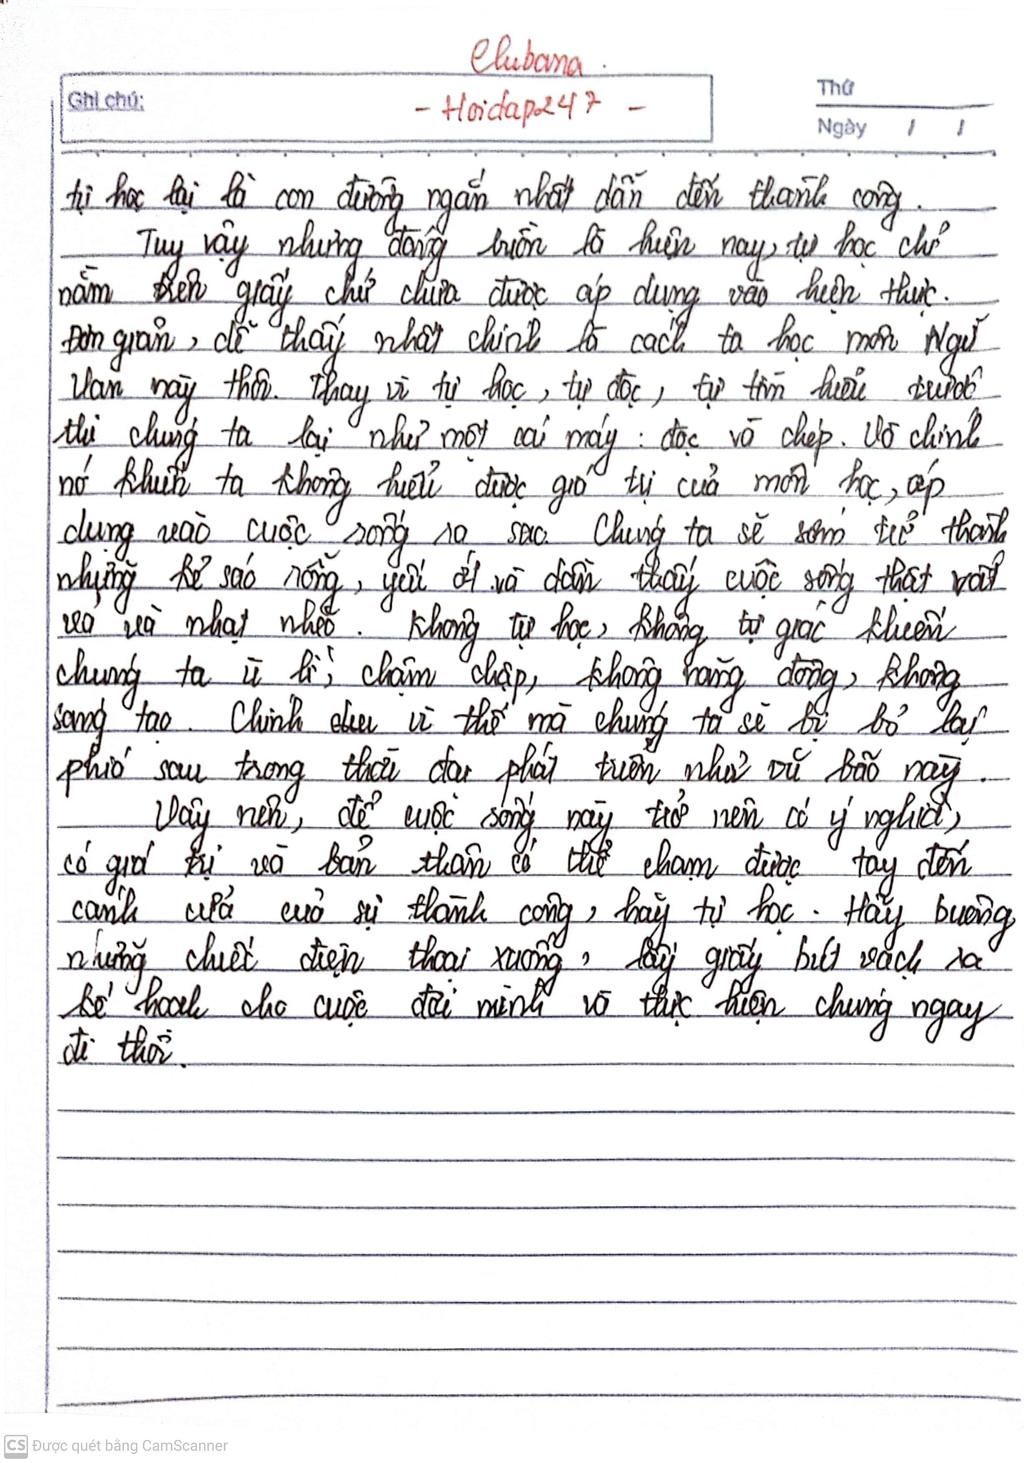 Clubana.
Ghi chú:
- Hoidap247 -
Thứ
Ngày / /
tự học lại là con đường ngắn nhất dẫn đến thành công.
Tuy vậy nhưng đáng buồn là hiện nay, tự học chỉ
nằm trên giấy chứ chưa được áp dụng vào hiện thực.
Đơn giản, dễ thấy nhất chính là cách ta học môn Ngữ
Văn này thôi. Thay vì tự học, tự đọc, tự tìm hiểu trước
thì chúng ta lại như một cái máy: đọc và chép. Và chính
nó khiến ta không hiểu được giá trị của môn học, áp
dụng vào cuộc sống ra sao. Chúng ta sẽ sớm trở thành
những kẻ sáo rỗng, yếu ớt và dần thấy cuộc sống thật vất
vả và nhạt nhẽo. Không tự học, không tự giác khiến
chúng ta ù lì, chậm chạp, không năng động, không
sáng tạo. Chính vì thế mà chúng ta sẽ bị bỏ lại
phía sau trong thời đại phát triển như vũ bão này.
Vậy nên, để cuộc sống này trở nên có ý nghĩa,
có giá trị và bản thân có thể chạm được tay đến
cánh cửa của sự thành công, hãy tự học. Hãy buông
những chiếc điện thoại xuống, lấy giấy bút vạch ra
kế hoạch cho cuộc đời mình và thực hiện chúng ngay
đi thôi.
CS Được quét bằng CamScanner